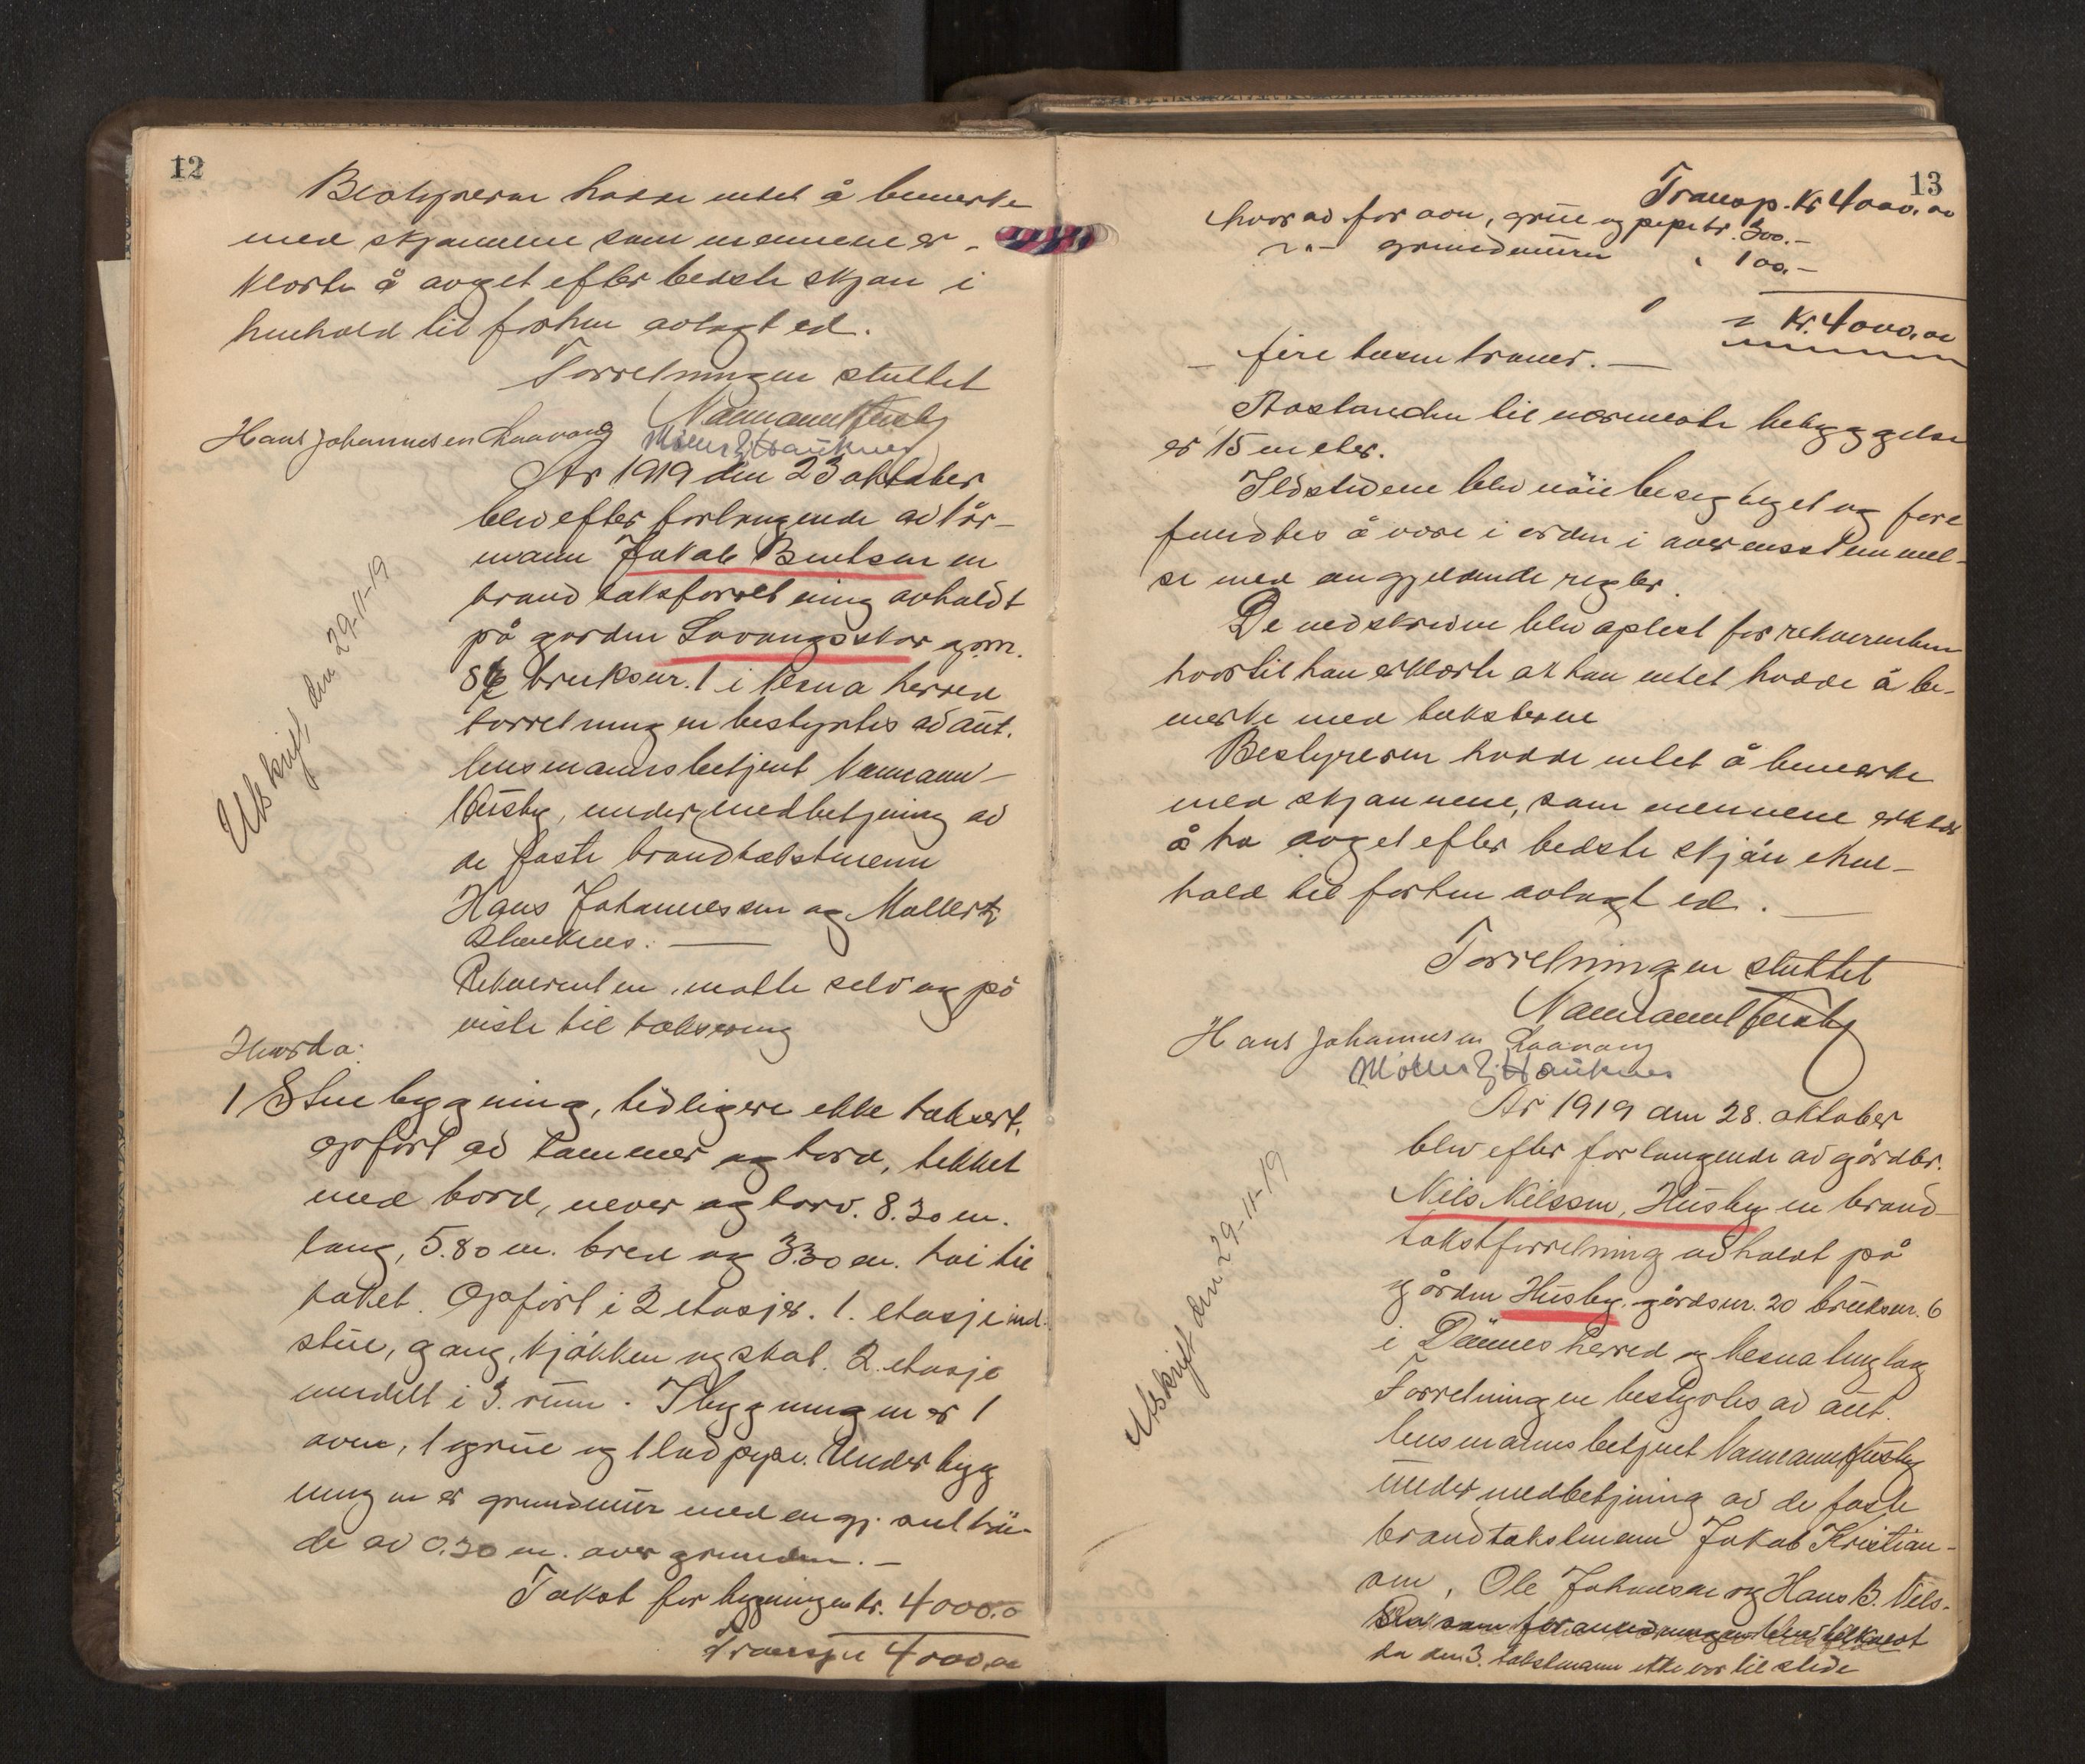 12
Bestyreren hadde intet å bemerke
med skjønnene som mennene er-
klærte å avget efter bedste skjøn i
henhold til forhen avlagt ed.
Forretningen sluttet
Hans Johannesen Laavong
Aar 1919 den 23 oktober
blev efter forlangende av kår-
mann Jakob Bentsen en
brandtakstforretning avholdt
på gården Lavongsskar gnr.
bruksnr. 1 i Nesna herred
Forretningen bestyrtes av aut.
lensmannsbetjent Normann
Husby, under medbetjening av
de faste brandtakstmenn
Hans Johannessen og Møllertz
Hauknes. —
Utskrift den 29-11-19
Rekvirenten møtte selv og på
viste til taksering
Hvorda:
1 Stuebygning, tidligere ikke taksert,
opført av tømmer og bord, tekket
med bord, never og torv. 8.30 m.
lang, 5.80 m. bred og 3.30 m. høi til
taket. Opført i 2 etasjer. 1. etasje ind.
stue, gang, kjøkken og skot. 2. etasje
inndelt i 3. rum. I bygningen er 1
ovn, 1 grue og 1 lod pipe. Under byg
ningen er grundmur med en gj. snl høi-
de av 0.30 m. over grunden. —
Takst for bygningen kr. 4000.00
Transp. kr 4000,00
13
Transp. Kr 4000.00
hvorav for ovn, grue og pipe kr. 300.-
-"- grundmuren " 100.-
= Kr. 4000.00
— fire tusen kroner. —
Avstanden til nærmeste bebyggelse
er 15 meter.
Ildstedene blev nøie besigtiget og fore
fandtes å være i orden i overensstemmel-
se med angjeldende regler.
De nedskrevne blev oplest for rekvirenten
hvortil han erklærte at han intet hadde å be-
merke med taksterne
Bestyreren hadde intet å bemerke
med skjønnene, som mennene erklær
å ha avget efter bedste skjøn i hen-
hold til forhen avlagt ed. —
Forretningen sluttet
Normann Husby
Hans Johannesen Laavong
Møllertz Hauknes
Aar 1919 den 28. oktober
blev efter forlangende av gårdbr.
Nils Nilssen, Husby en brand-
takstforretning avholdt på
gården Husby. gårdsnr. 20 bruksnr. 6
i Dønnes herred og Nesna tinglag
Forretningen bestyrtes av aut.
lensmannsbetjent Normann Husby
under medbetjening av de faste
brandtakstmenn Jakob Kristian-
sen, Ole Johansen og Hans B. Nils-
da den 3. takstmann ikke var til stede
Utskrift den 29-11-19